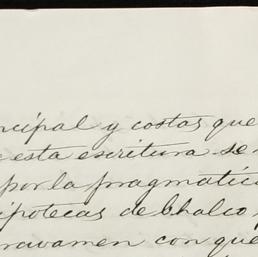 ncipal y costas que
esta escritura se
por la pragmátic
ipotecas de Chalco
ravamen con que